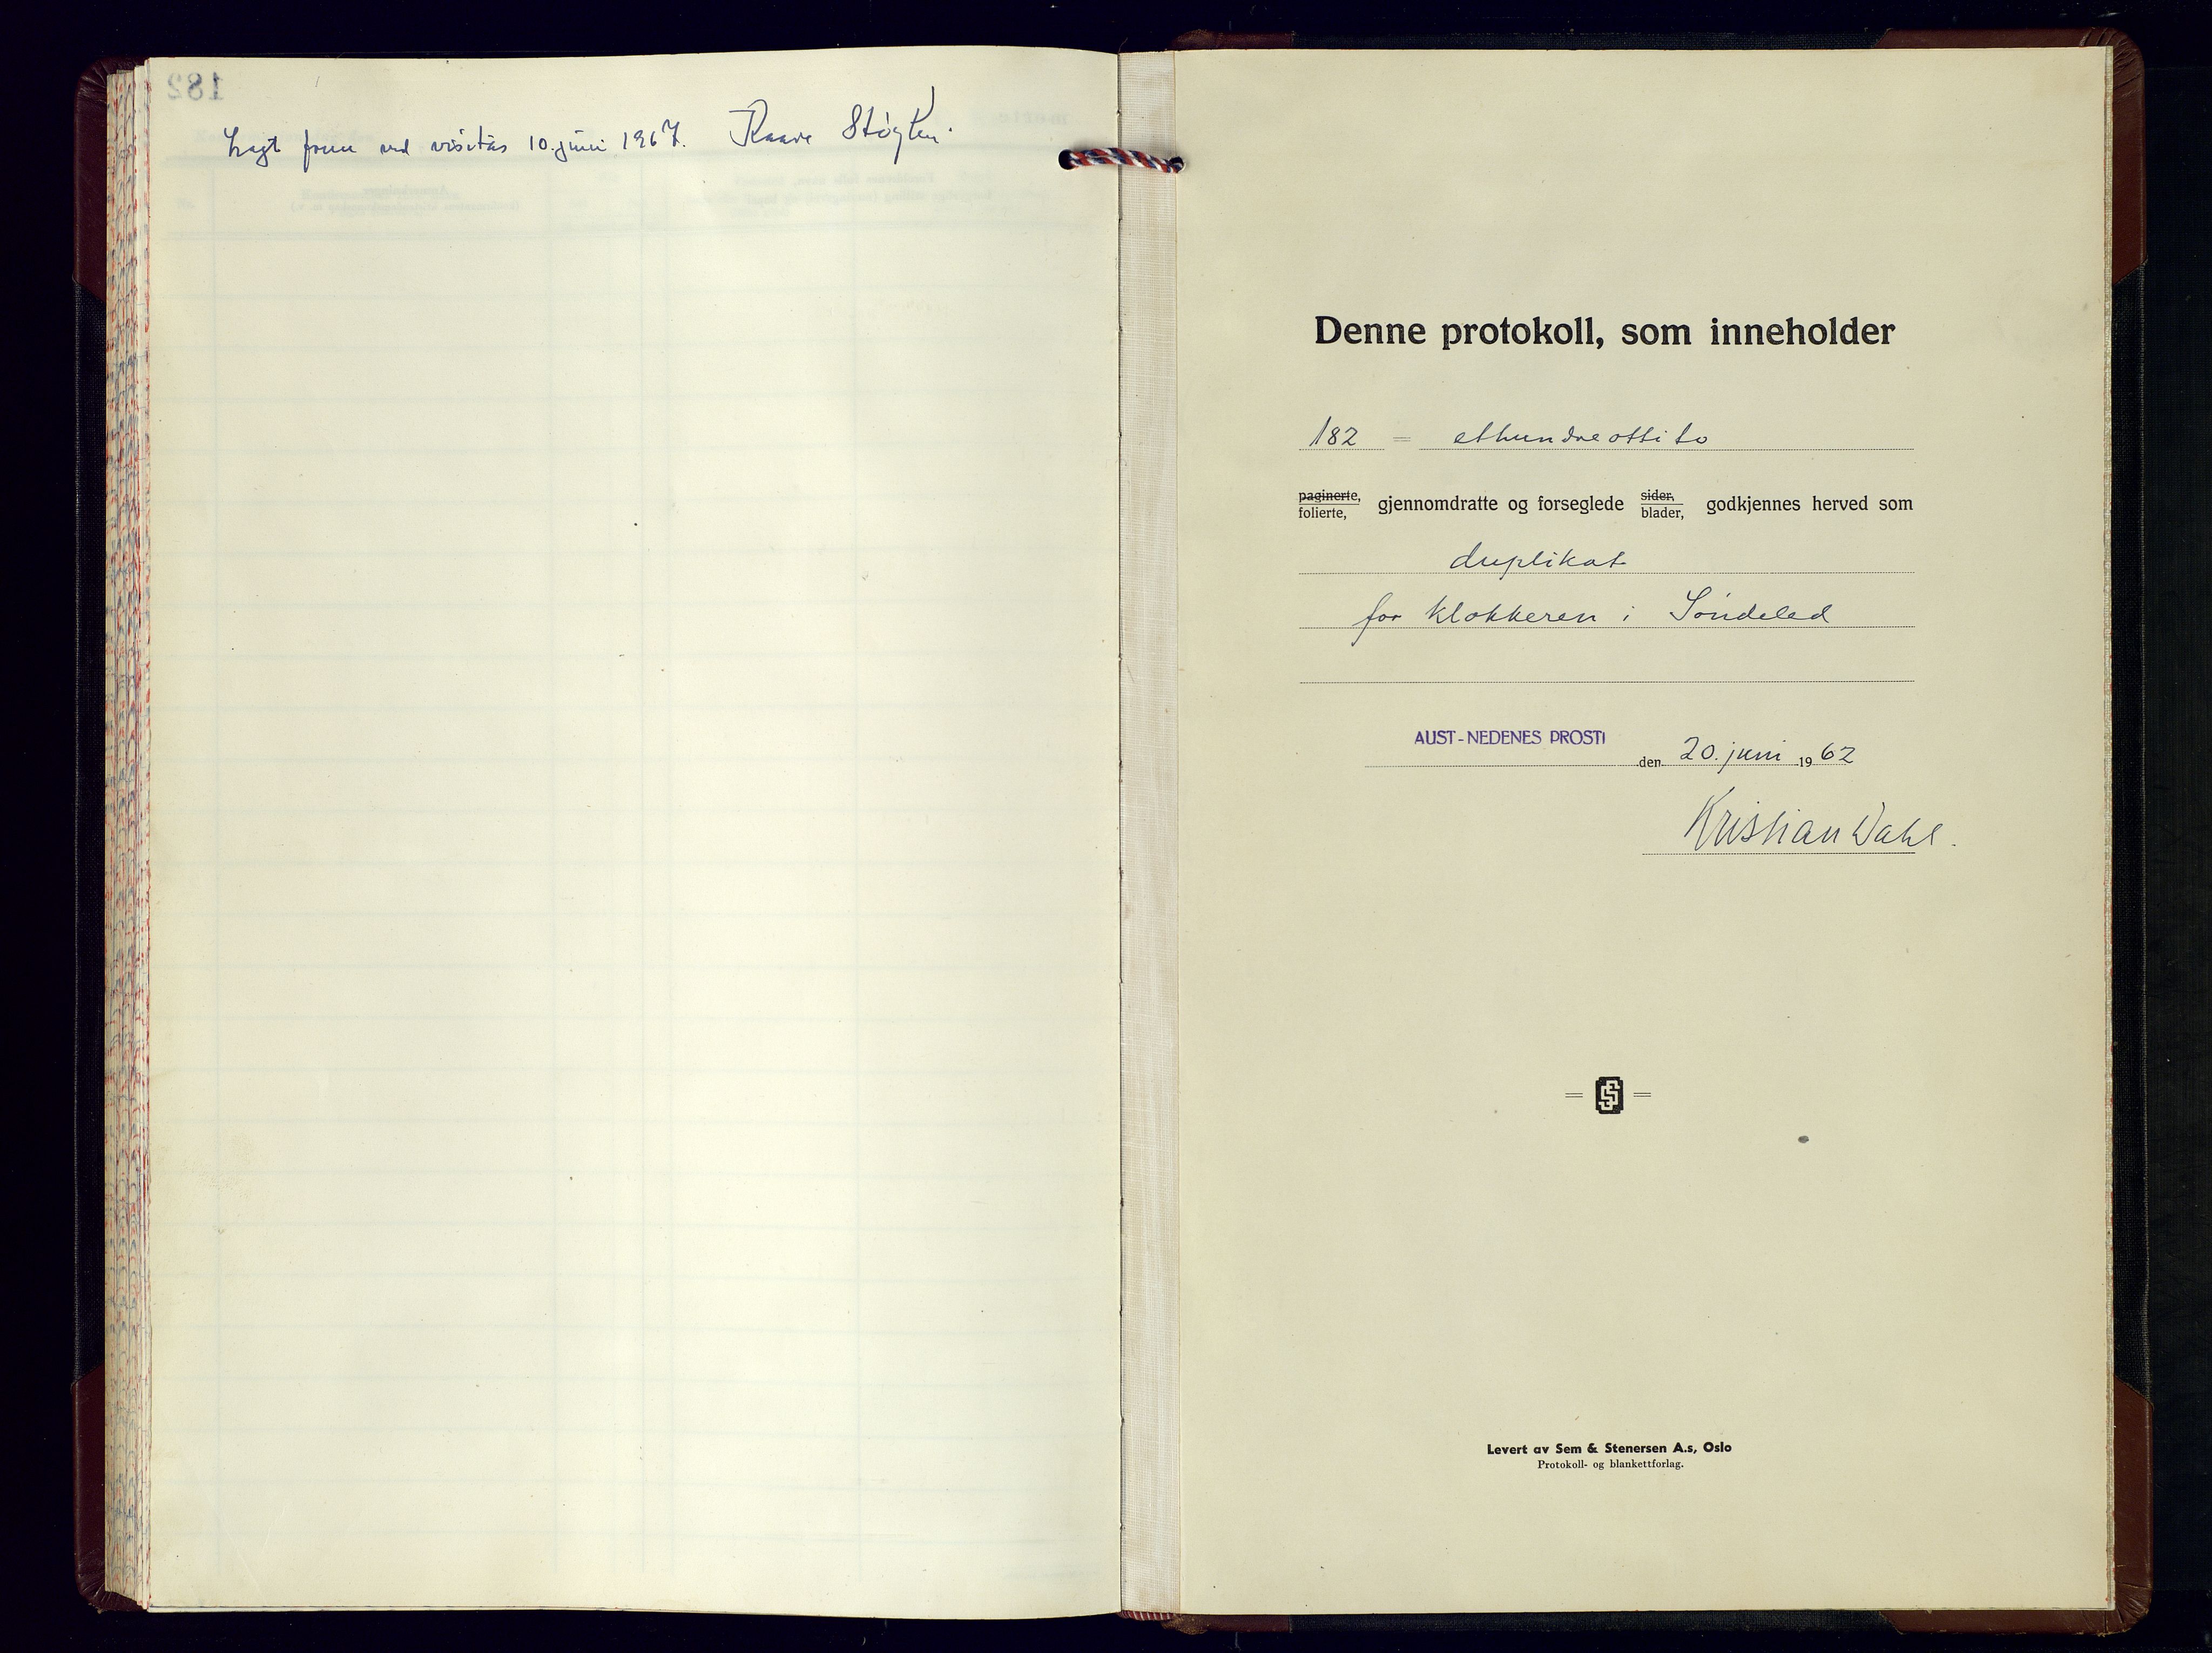 182
Lagt frem ved visitas 10. juni 1967. Kaare Støylen.
Denne protokoll, som inneholder
182 = ethundreottito
paginerte, folierte, gjennomdratte og forseglede sider, blader, godkjennes herved som
duplikat
for klokkeren i Søndeled
AUST-NEDENES PROSTI den 20. juni 1962
Kristian Dahl.
Levert av Sem & Stenersen A.s, Oslo
Protokoll- og blankettforlag.